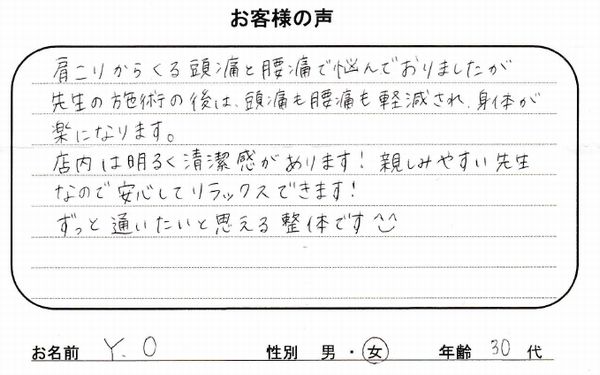 お客様の声
肩こりからくる頭痛と腰痛で悩んでおりましたが
先生の施術の後は、頭痛も腰痛も軽減され、身体が
楽になります。
店内は明るく清潔感があります！親しみやすい先生
なので安心してリラックスできます！
ずっと通いたいと思える整体です
お名前 Y.O 性別 男・女 年齢 30 代